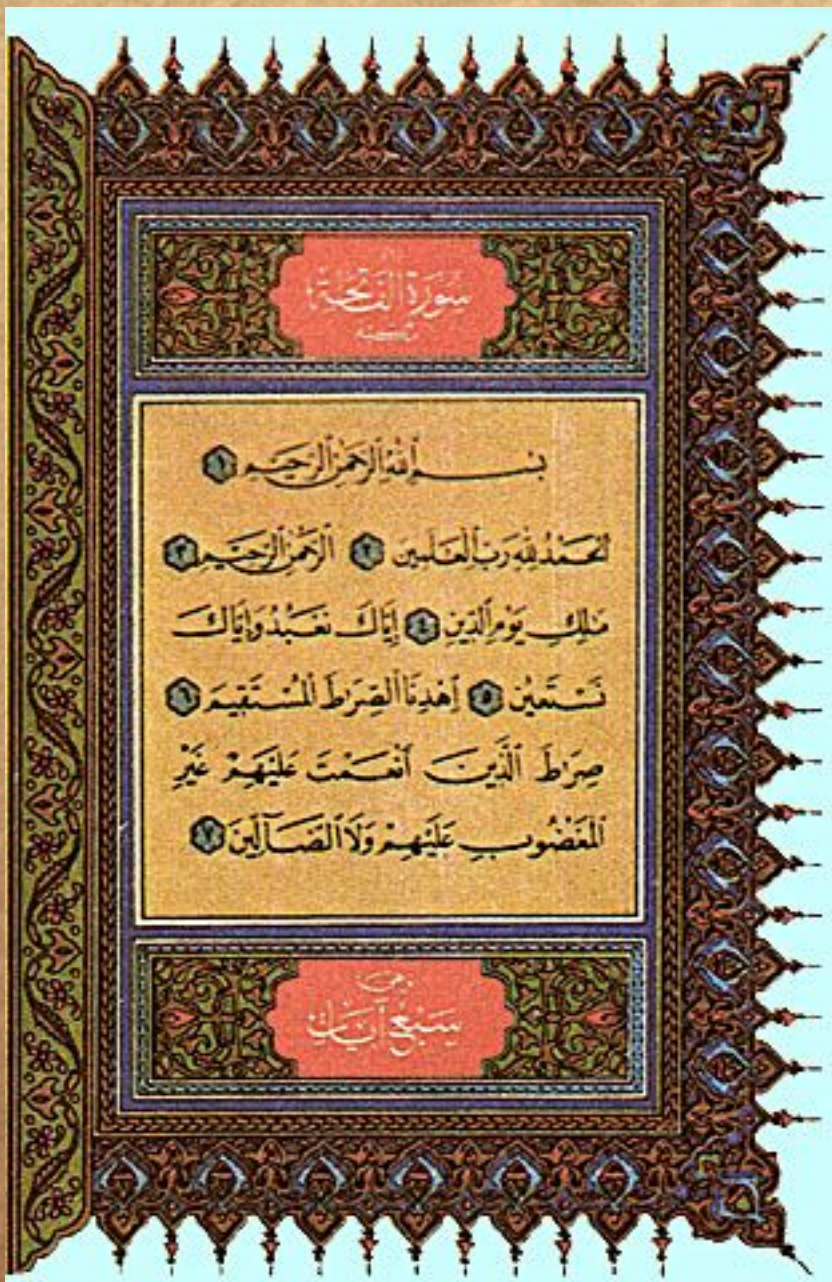 سُورَةُ الفَاتِحَةِ
مكية
بِسْمِ ٱللَّهِ ٱلرَّحْمَٰنِ ٱلرَّحِيمِ ١
ٱلْحَمْدُ لِلَّهِ رَبِّ ٱلْعَٰلَمِينَ ٢ ٱلرَّحْمَٰنِ ٱلرَّحِيمِ ٣
مَٰلِكِ يَوْمِ ٱلدِّينِ ٤ إِيَّاكَ نَعْبُدُ وَإِيَّاكَ
نَسْتَعِينُ ٥ ٱهْدِنَا ٱلصِّرَٰطَ ٱلْمُسْتَقِيمَ ٦
صِرَٰطَ ٱلَّذِينَ أَنْعَمْتَ عَلَيْهِمْ غَيْرِ
ٱلْمَغْضُوبِ عَلَيْهِمْ وَلَا ٱلضَّآلِّينَ ٧
سَبْعُ آيَاتٍ